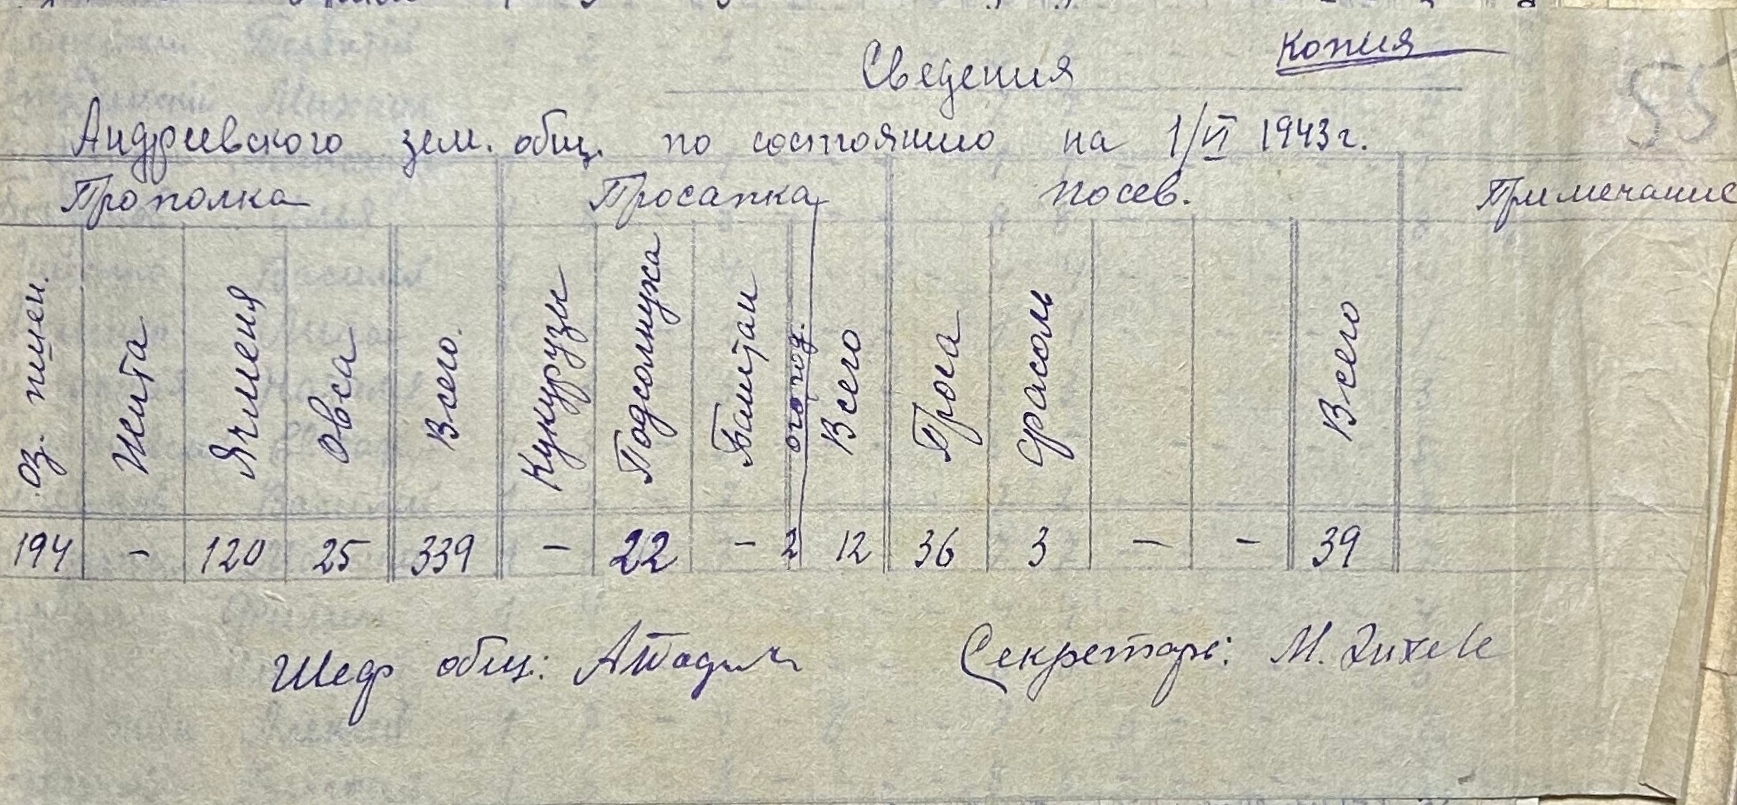 Копия
Сведения
55
Андреевского зем. общ. по состоянию на 1/VI 1943г.
Прополка Просапка Посев. Примечание
оз. пшен. Жита Ячменя Овса Всего. Кукурузы Подсолнуха Баштан огород. Всего Проса Фрасоль Всего
194 - 120 25 339 - 22 - 2 12 36 3 - - 39
Шеф общ: Секретарь: М.